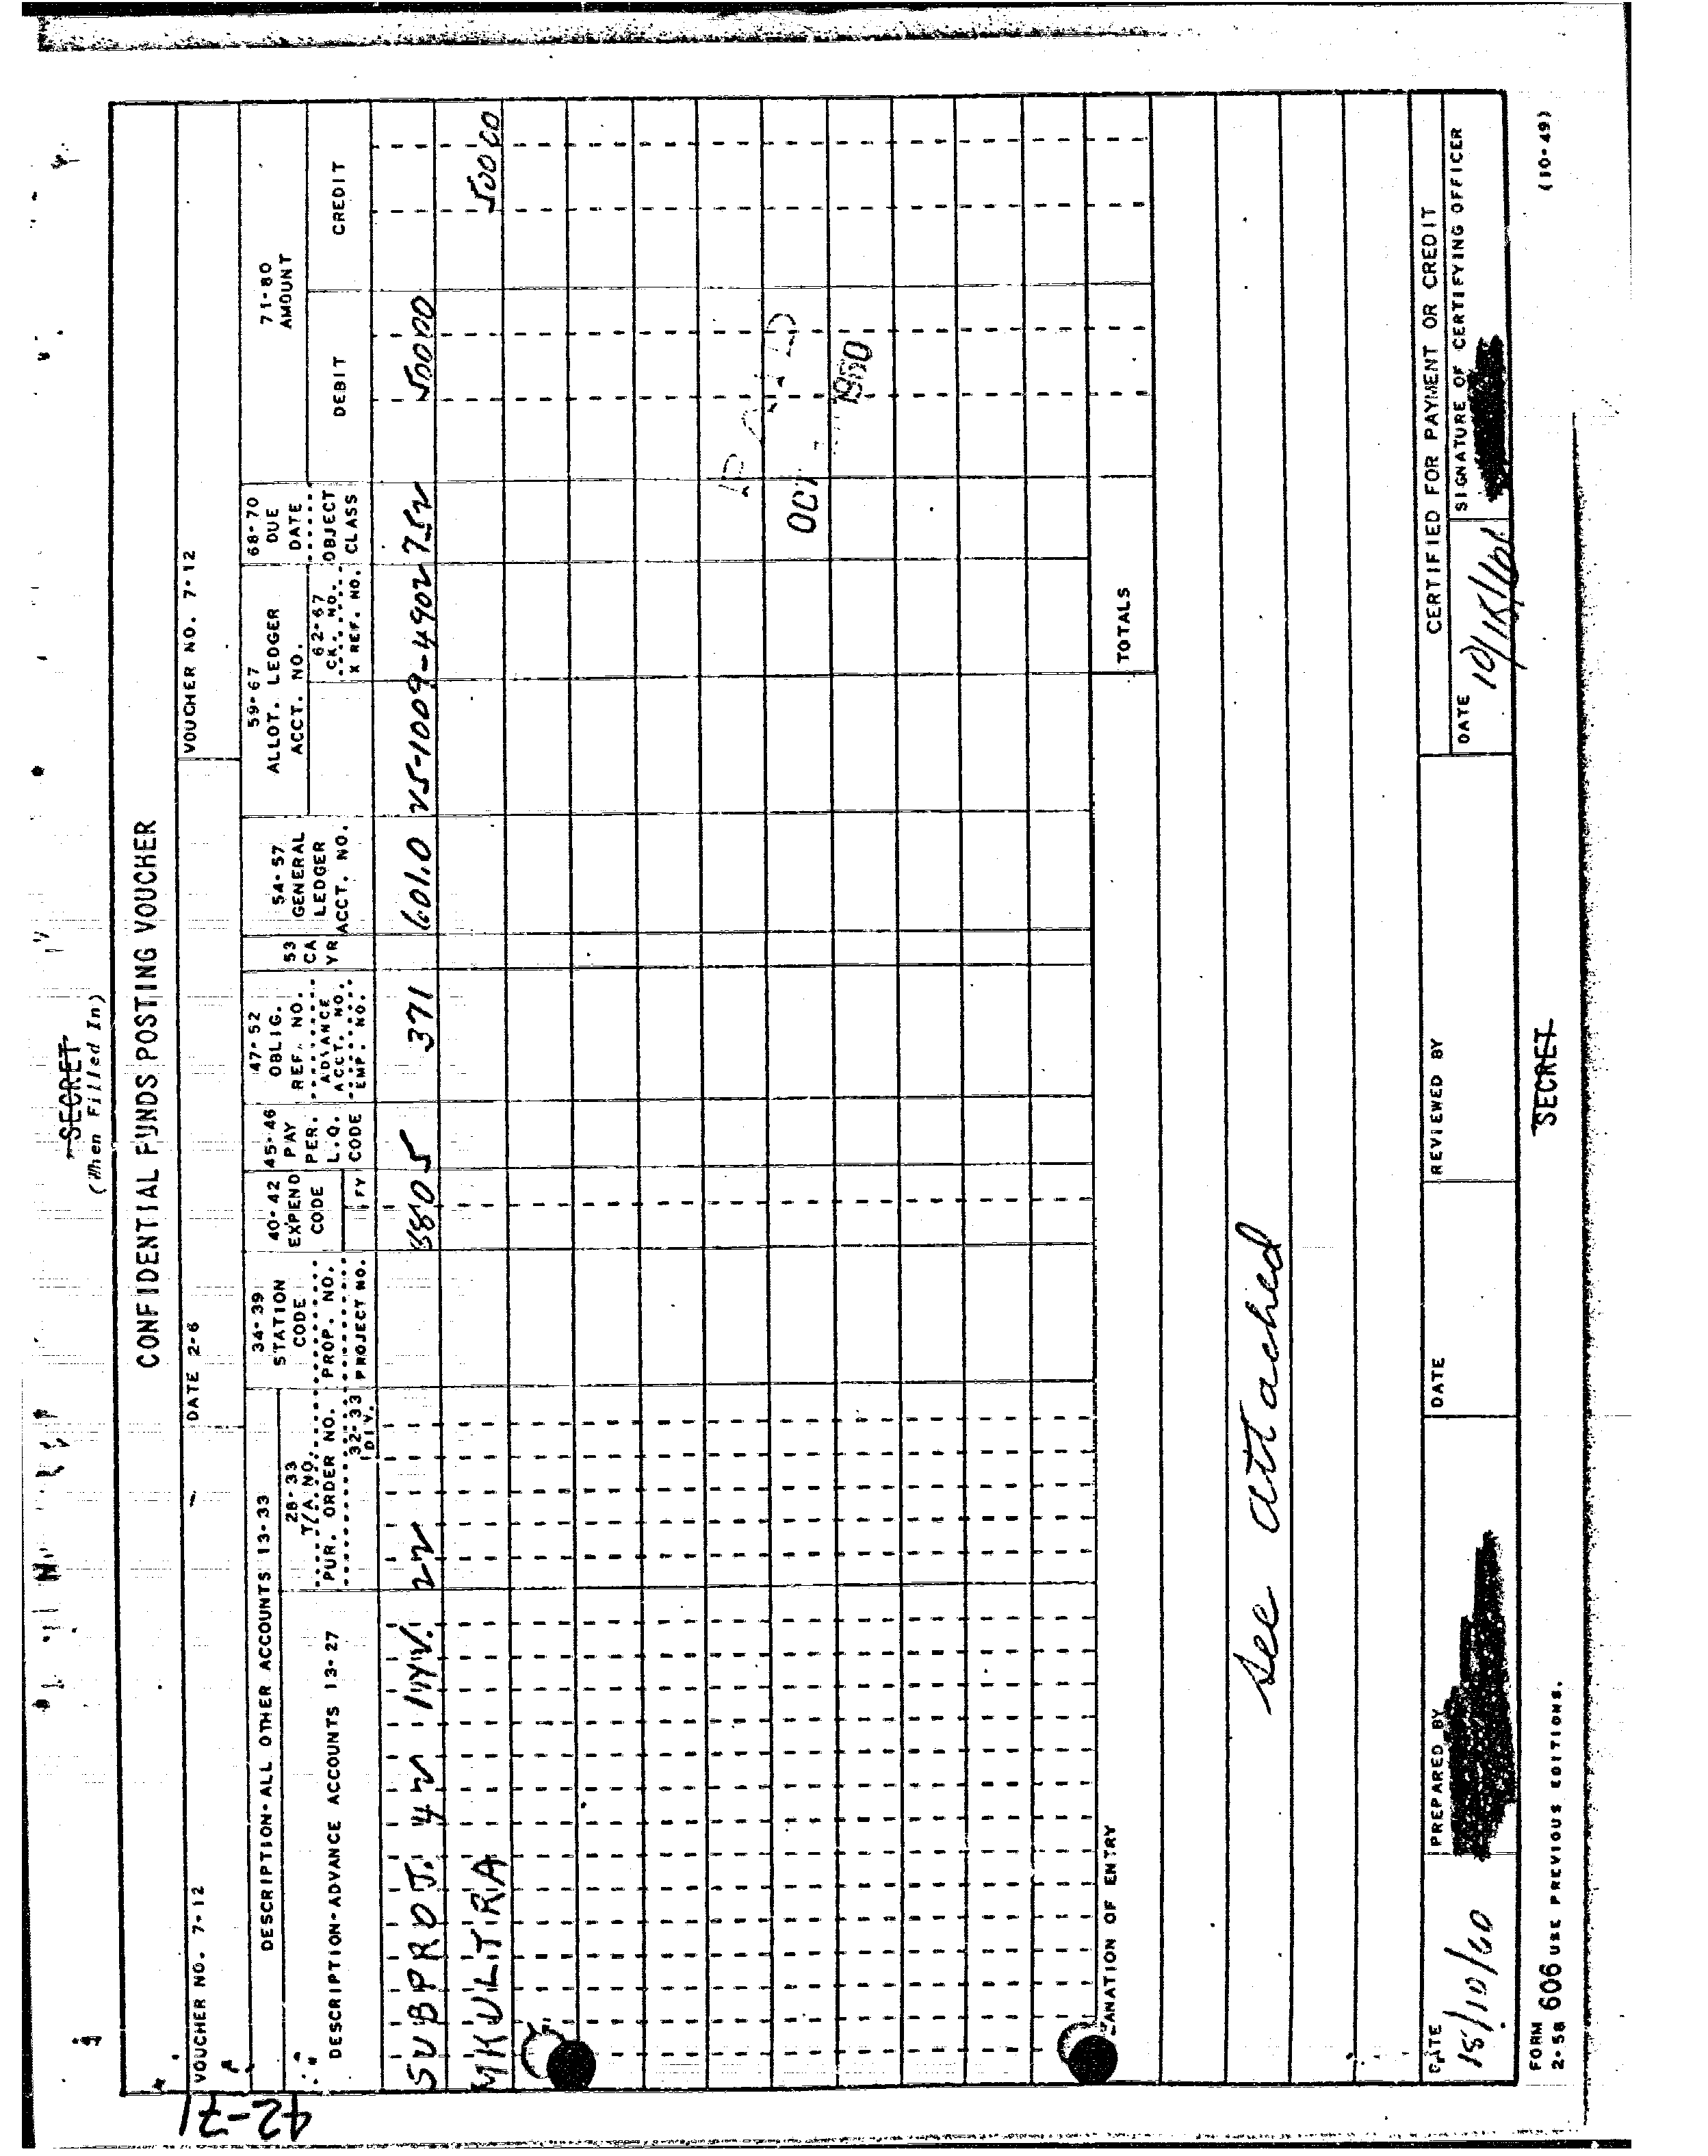 SECRET
(When Filled In)
CONFIDENTIAL FUNDS POSTING VOUCHER
VOUCHER NO. 7-12
DATE 2-6
VOUCHER NO. 7-12
DESCRIPTION-ALL OTHER ACCOUNTS 13-33
DESCRIPTION-ADVANCE ACCOUNTS 13-27
28-33
T/A NO.
PUR. ORDER NO.
32-33
DIV.
34-39
STATION
CODE
PROP. NO.
PROJECT NO.
40-42
EXPEND
CODE
FY
45-46
PAY
PER.
L.Q.
CODE
47-52
OBLIG.
REF. NO.
ADVANCE
ACCT. NO.
EMP. NO.
53
CA
YR
54-57
GENERAL
LEDGER
ACCT. NO.
59-67
ALLOT. LEDGER
ACCT. NO.
62-67
CK. NO.
X REF. NO.
68-70
DUE
DATE
OBJECT
CLASS
71-80
AMOUNT
DEBIT
CREDIT
SUBPROJ. 42 INV. 22 8805 371 601.0 25-1009-4902 752 50000
MKULTRA 50000
PAID
OCT 1960
TOTALS
EXPLANATION OF ENTRY
See attached
DATE
PREPARED BY
DATE
REVIEWED BY
CERTIFIED FOR PAYMENT OR CREDIT
DATE
SIGNATURE OF CERTIFYING OFFICER
18/10/60
FORM
2-58 606 USE PREVIOUS EDITIONS.
SECRET
(10-49)
42-71